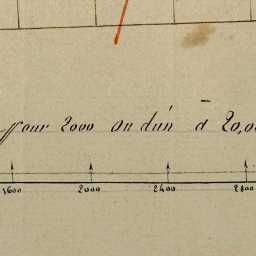 pour 2000 ou d'un à 20,0
1600 2000 2400 2800